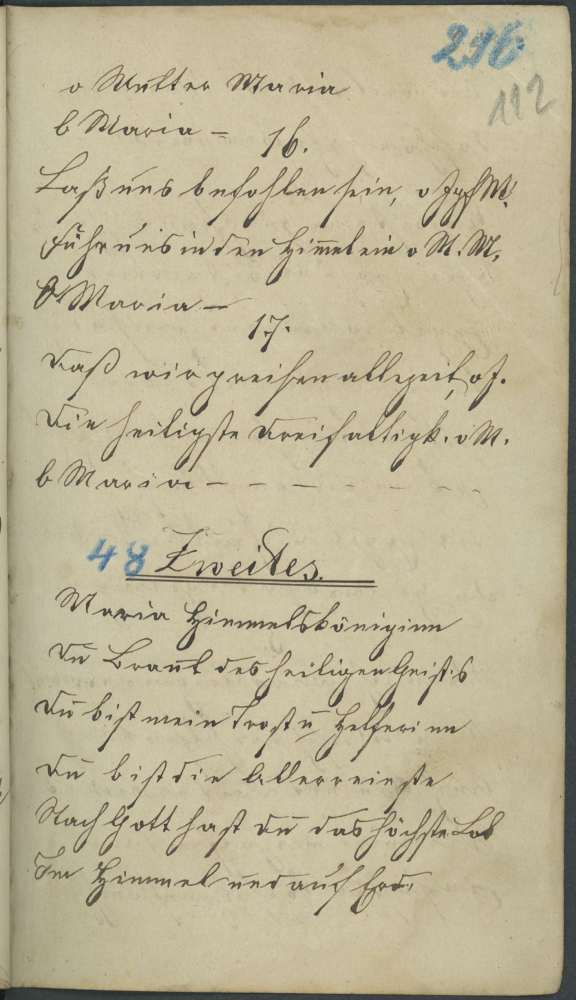 296
112
o Mutter Maria
b Maria –
16.
Laß uns befohlen sein, o
Führ uns in den Himel ein o M. M.
O Maria –
17.
Daß wir preisen allezeit, o J.
Die heiligste Dreifaltigk. o M.
b Maria – – – – – – –
48 Zweites.
Maria Himmelsköniginn
Du Braut des heiligen Geistes
Du bist mein Trost u. Helferinn
Du bist die Allerreinste
Nach Gott hast du das höchste Lob
Im Himmel und auf Erd.